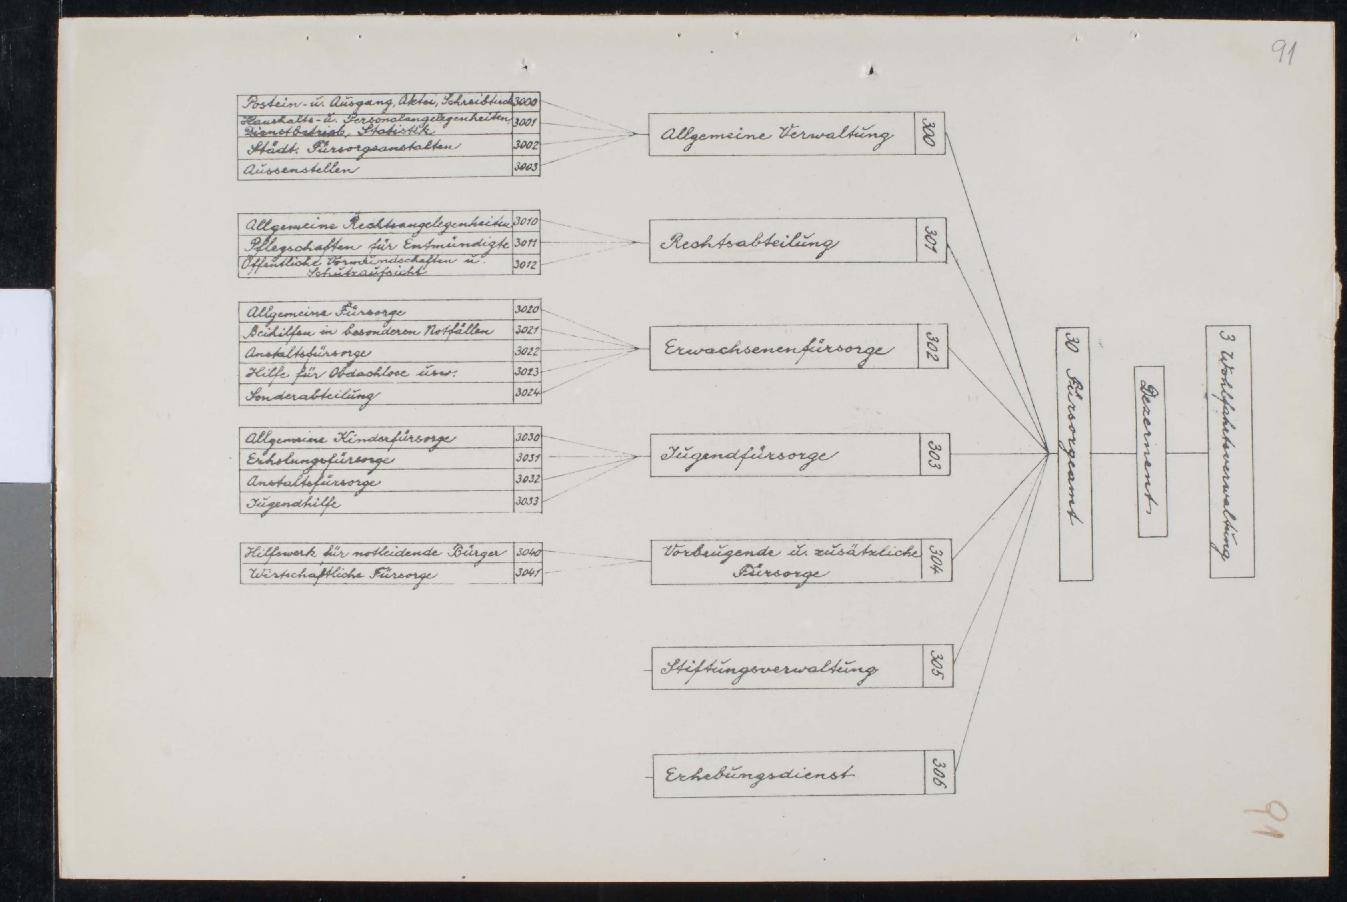 91
3 Wohlfahrtsverwaltung
Dezernent
30 Fürsorgeamt
300 Allgemeine Verwaltung
3000 Postein- u. Ausgang, Aktei, Schreibtisch
3001 Haushalts- u. Personalangelegenheiten
Dienstbetrieb, Statistik
3002 Städt. Fürsorgeanstalten
3003 Aussenstellen
301 Rechtsabteilung
3010 Allgemeine Rechtsangelegenheiten
3011 Pflegschaften für Entmündigte
3012 Öffentliche Vormundschaften u.
Schutzaufsicht
302 Erwachsenenfürsorge
3020 Allgemeine Fürsorge
3021 Beihilfen in besonderen Notfällen
3022 Anstaltsfürsorge
3023 Hilfe für Obdachlose usw.
3024 Sonderabteilung
303 Jugendfürsorge
3030 Allgemeine Kinderfürsorge
3031 Erholungsfürsorge
3032 Anstaltsfürsorge
3033 Jugendhilfe
304 Vorbeugende u. zusätzliche
Fürsorge
3040 Hilfswerk für notleidende Bürger
3041 Wirtschaftliche Fürsorge
305 Stiftungsverwaltung
306 Erhebungsdienst
91